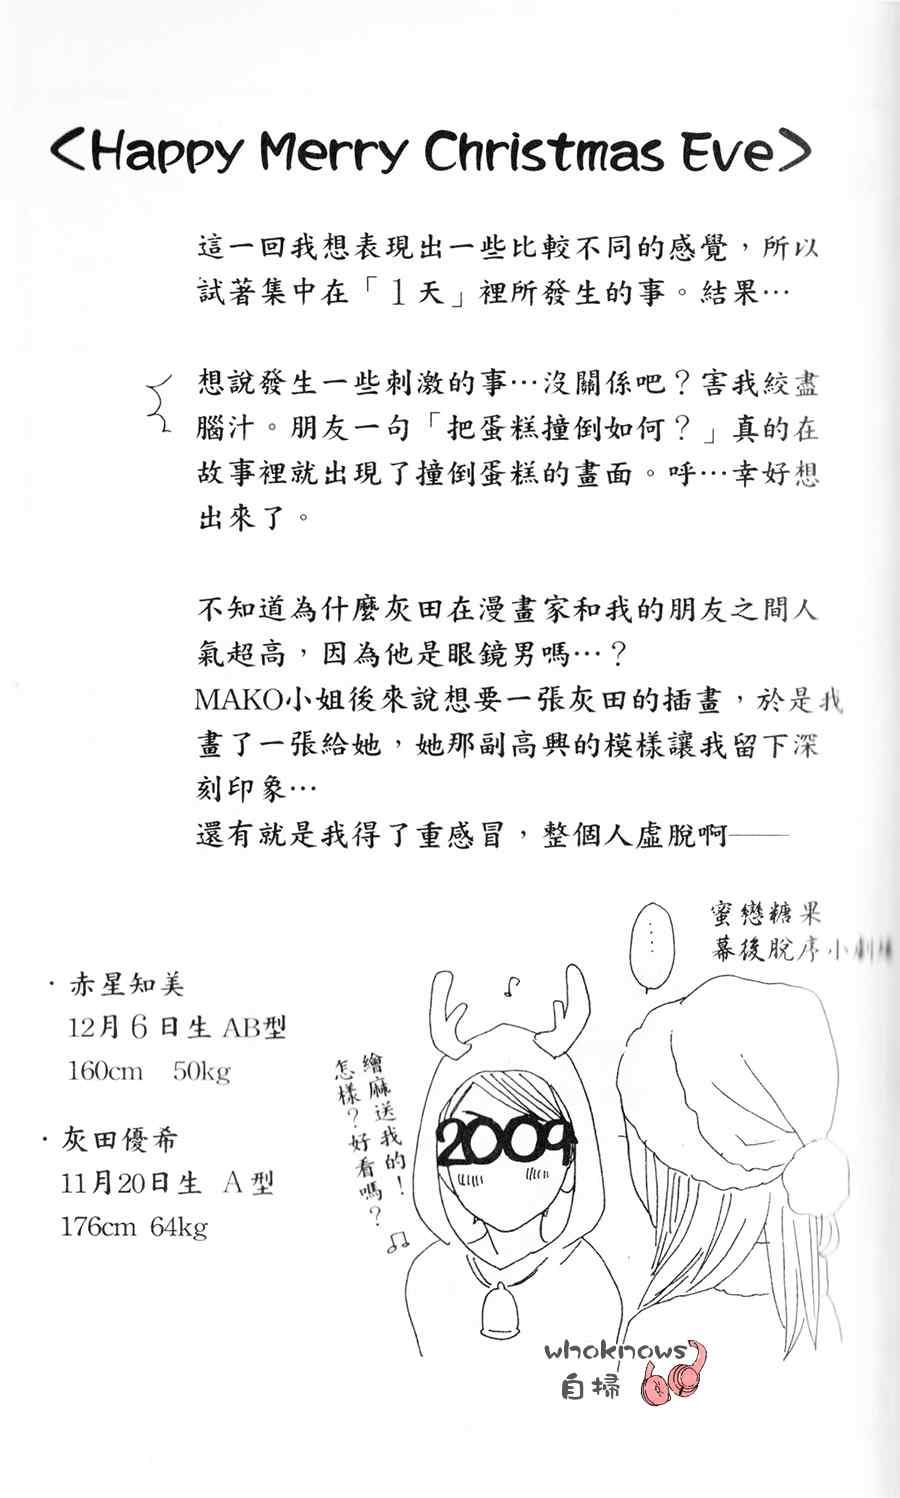 <Happy Merry Christmas Eve>
這一回我想表現出一些比較不同的感覺，所以
試著集中在「1天」裡所發生的事。結果…
想說發生一些刺激的事…沒關係吧？害我絞盡
腦汁。朋友一句「把蛋糕撞倒如何？」真的在
故事裡就出現了撞倒蛋糕的畫面。呼…幸好想
出來了。
不知道為什麼灰田在漫畫家和我的朋友之間人
氣超高，因為他是眼鏡男嗎…？
MAKO小姐後來說想要一張灰田的插畫，於是我
畫了一張給她，她那副高興的模樣讓我留下深
刻印象…
還有就是我得了重感冒，整個人虛脫啊——
蜜戀糖果
幕後脫序小劇場
・赤星知美
12月6日生 AB型
160cm 50kg
・灰田優希
11月20日生 A型
176cm 64kg
繪麻送我的！
怎樣？好看嗎？
……
2009
whoknows
自掃